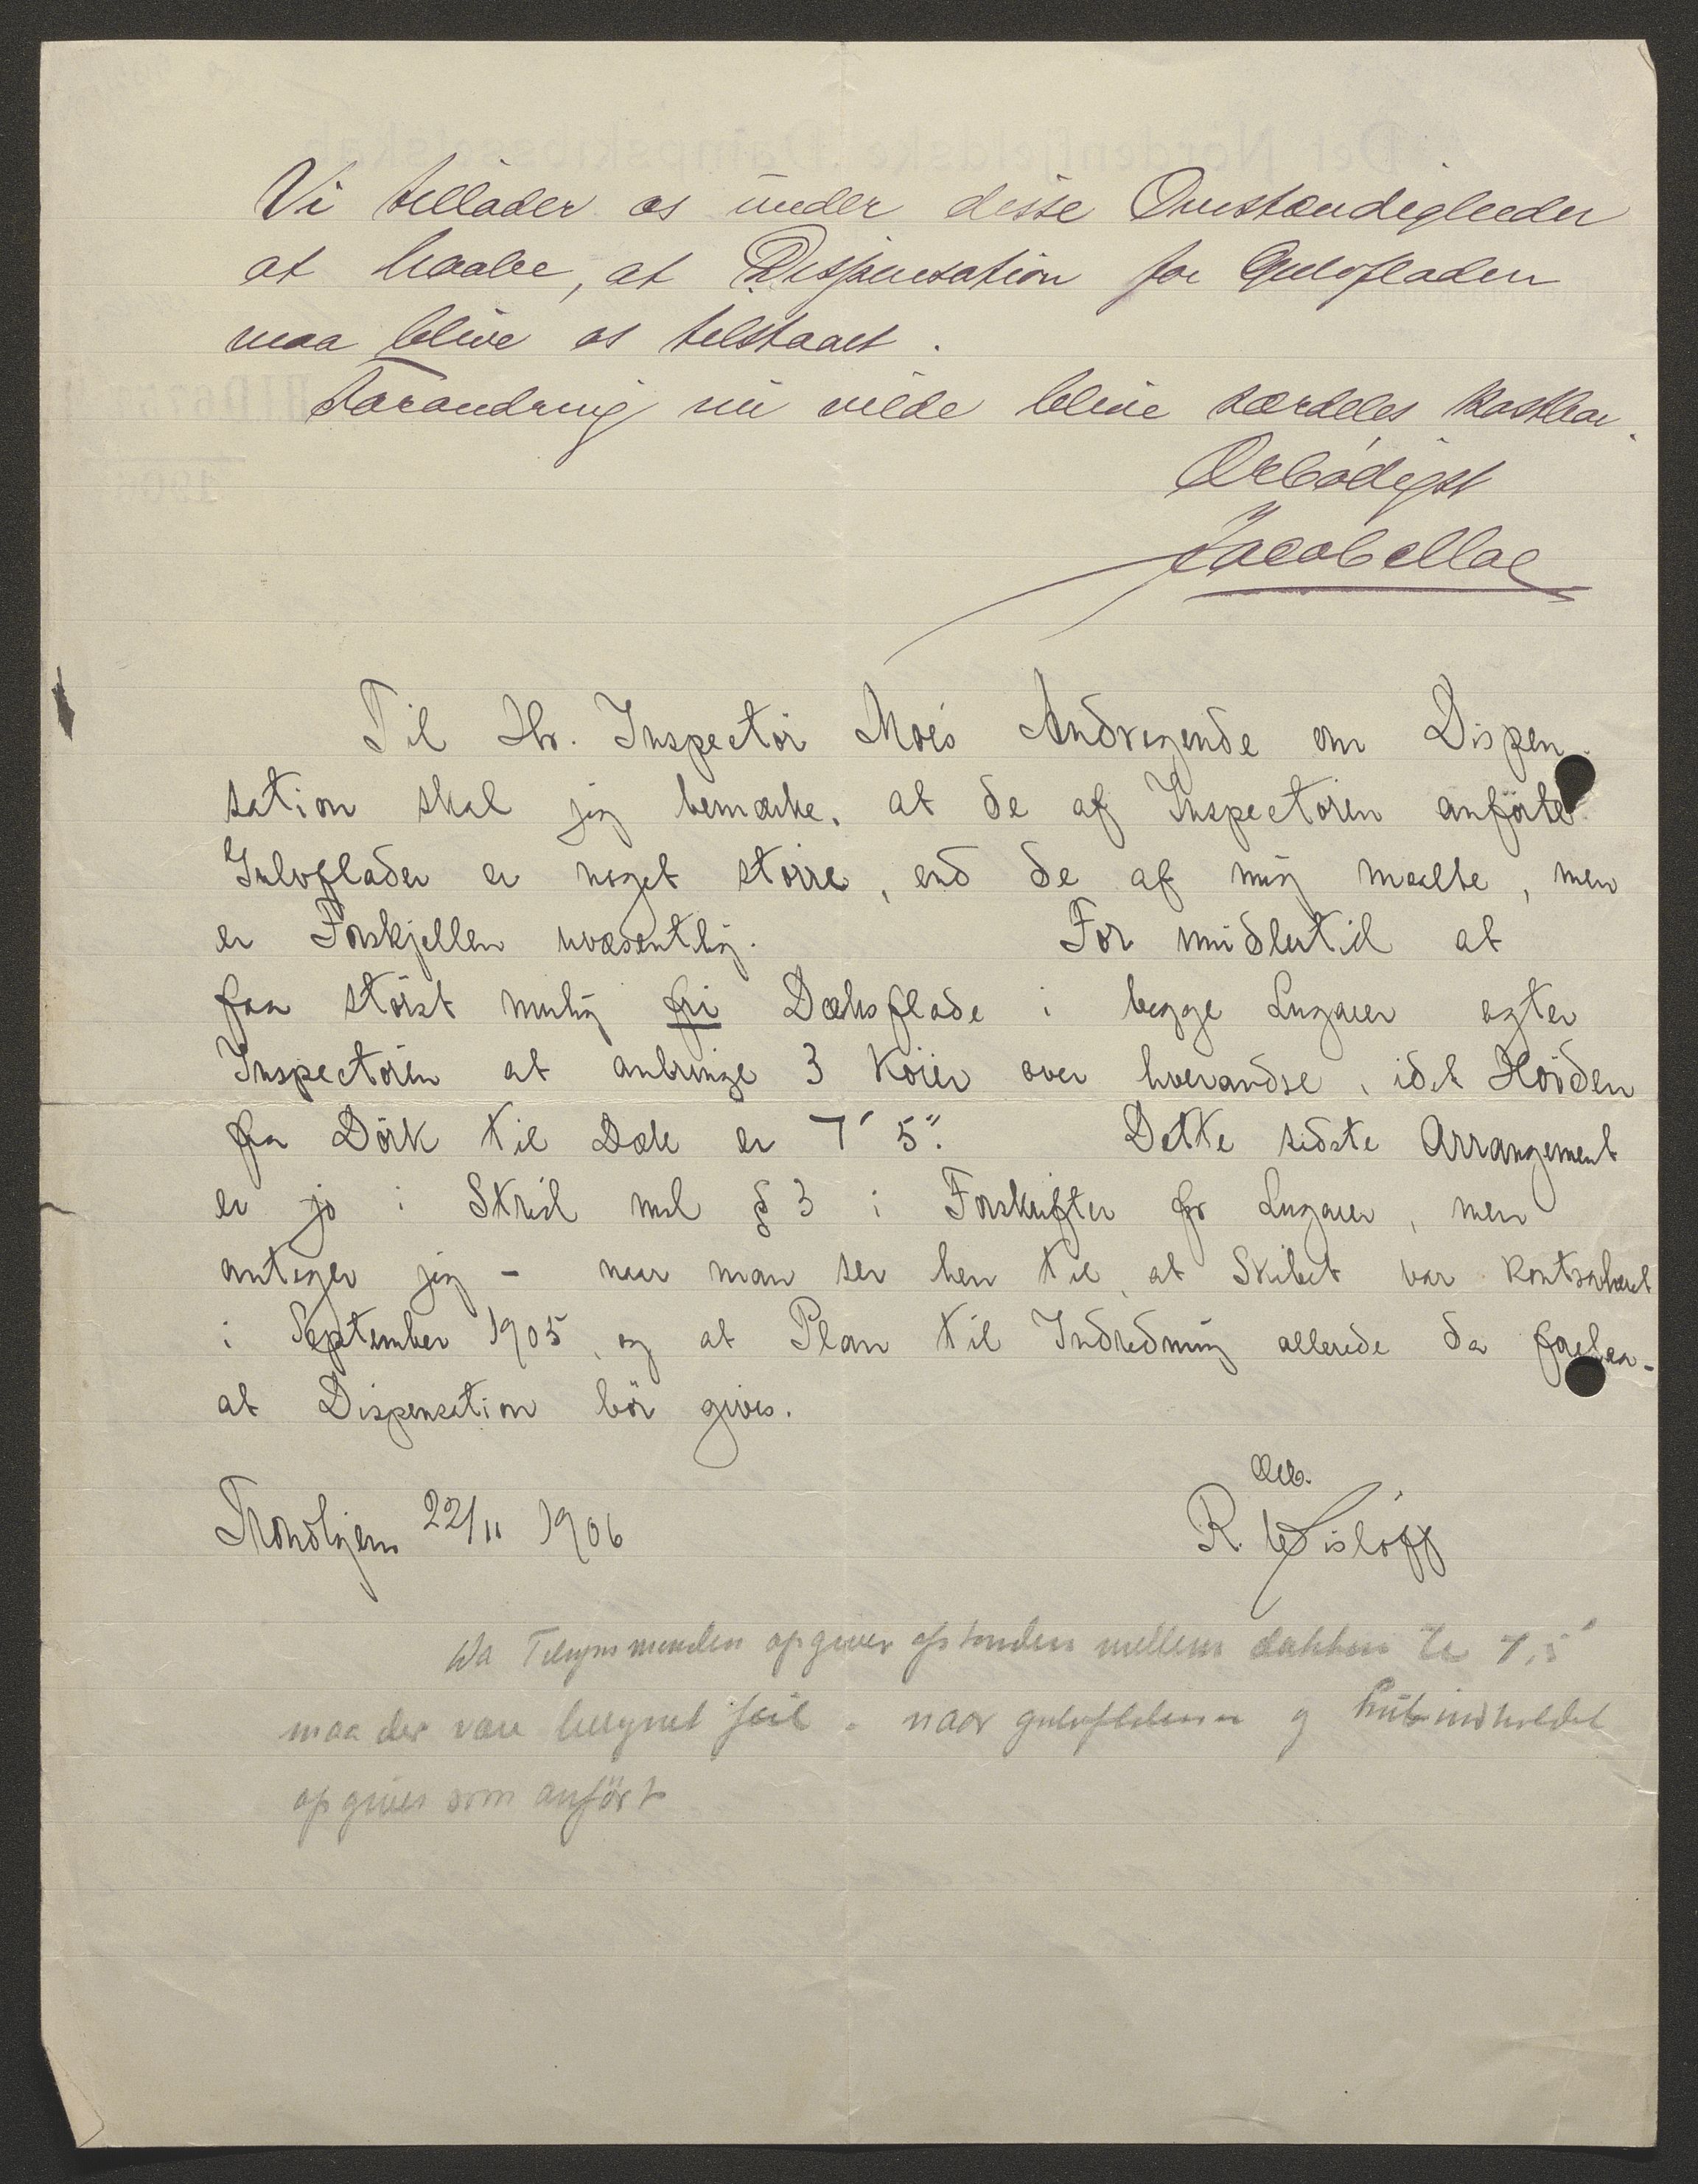 Vi tillader os under disse Omstændigheder
at haabe, at Dispensation for Gulvfladen
maa blive os tilstaaet.
Forandring nu vilde blive særdeles kostbar.
Ærbødigst
Jacob Moe
Til Hr. Inspectør Moe's Andragende om Dispen-
sation skal jeg bemærke, at de af Inspectøren anførte
Gulvflader er noget større, end de af mig maalte, men
er Forskjellen uvæsentlig. For imidlertid at
faa størst mulig fri Dæksflade i begge Lugarer agter
Inspectøren at anbringe 3 Køier over hverandre, idet Høiden
fra Dørk til Dæk er 7' 5". Dette sidste Arrangement
er jo i Strid med § 3 i Forskrifter for Lugarer, men
antager jeg - naar man ser hen til, at Skibet var kontraheret
i September 1905, og at Plan til Indredning allerede da forelaa-
at Dispensation bør gives.
Trondhjem 22/11 1906
Ærb.
R. Lisløff
Da Tilsynsmanden opgiver afstanden mellem dækkene til 7,5'
maa der være beregnet feil - naar gulvfladerne og kubikindholdet
opgives som anført